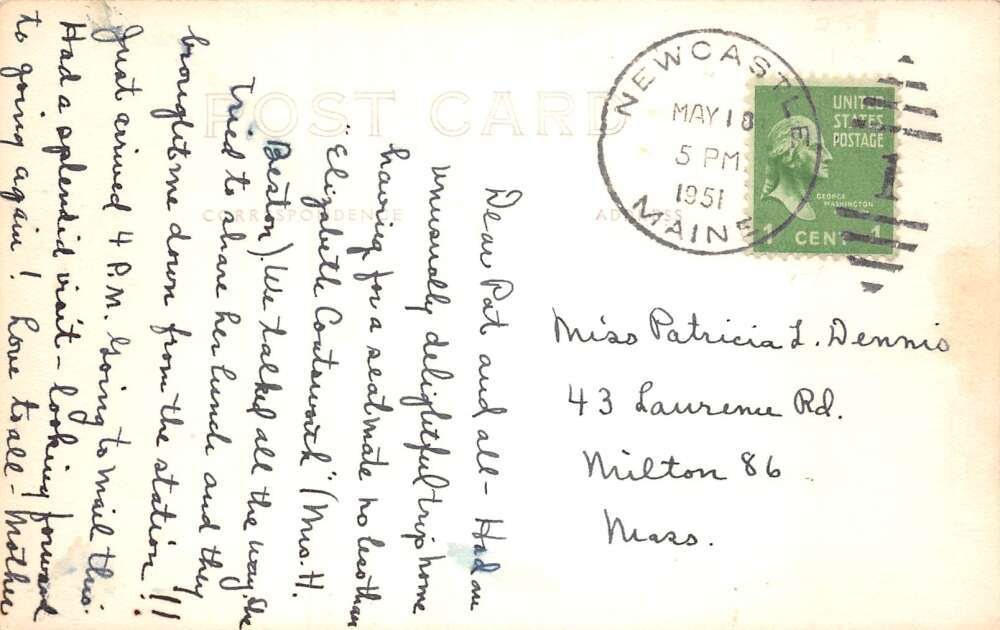 POST CARD
CORRESPONDENCE
ADDRESS
Dear Pat and all - Had an
unusually delightful trip home
having for a seatmate no less than
"Elizabeth Coatsworth" (Mrs. H.
Beston). We talked all the way. She
tried to share her lunch and they
brought me down from the station!!
Just arrived 4 P.M. Going to mail this.
Had a splendid visit - looking forward
to going again! Love to all - Mother
NEWCASTLE
MAY 18
5 PM
1951
MAINE
UNITED
STATES
POSTAGE
1
GEORGE
WASHINGTON
1 CENT 1
Miss Patricia L. Dennis
43 Laurence Rd.
Milton 86
Mass.